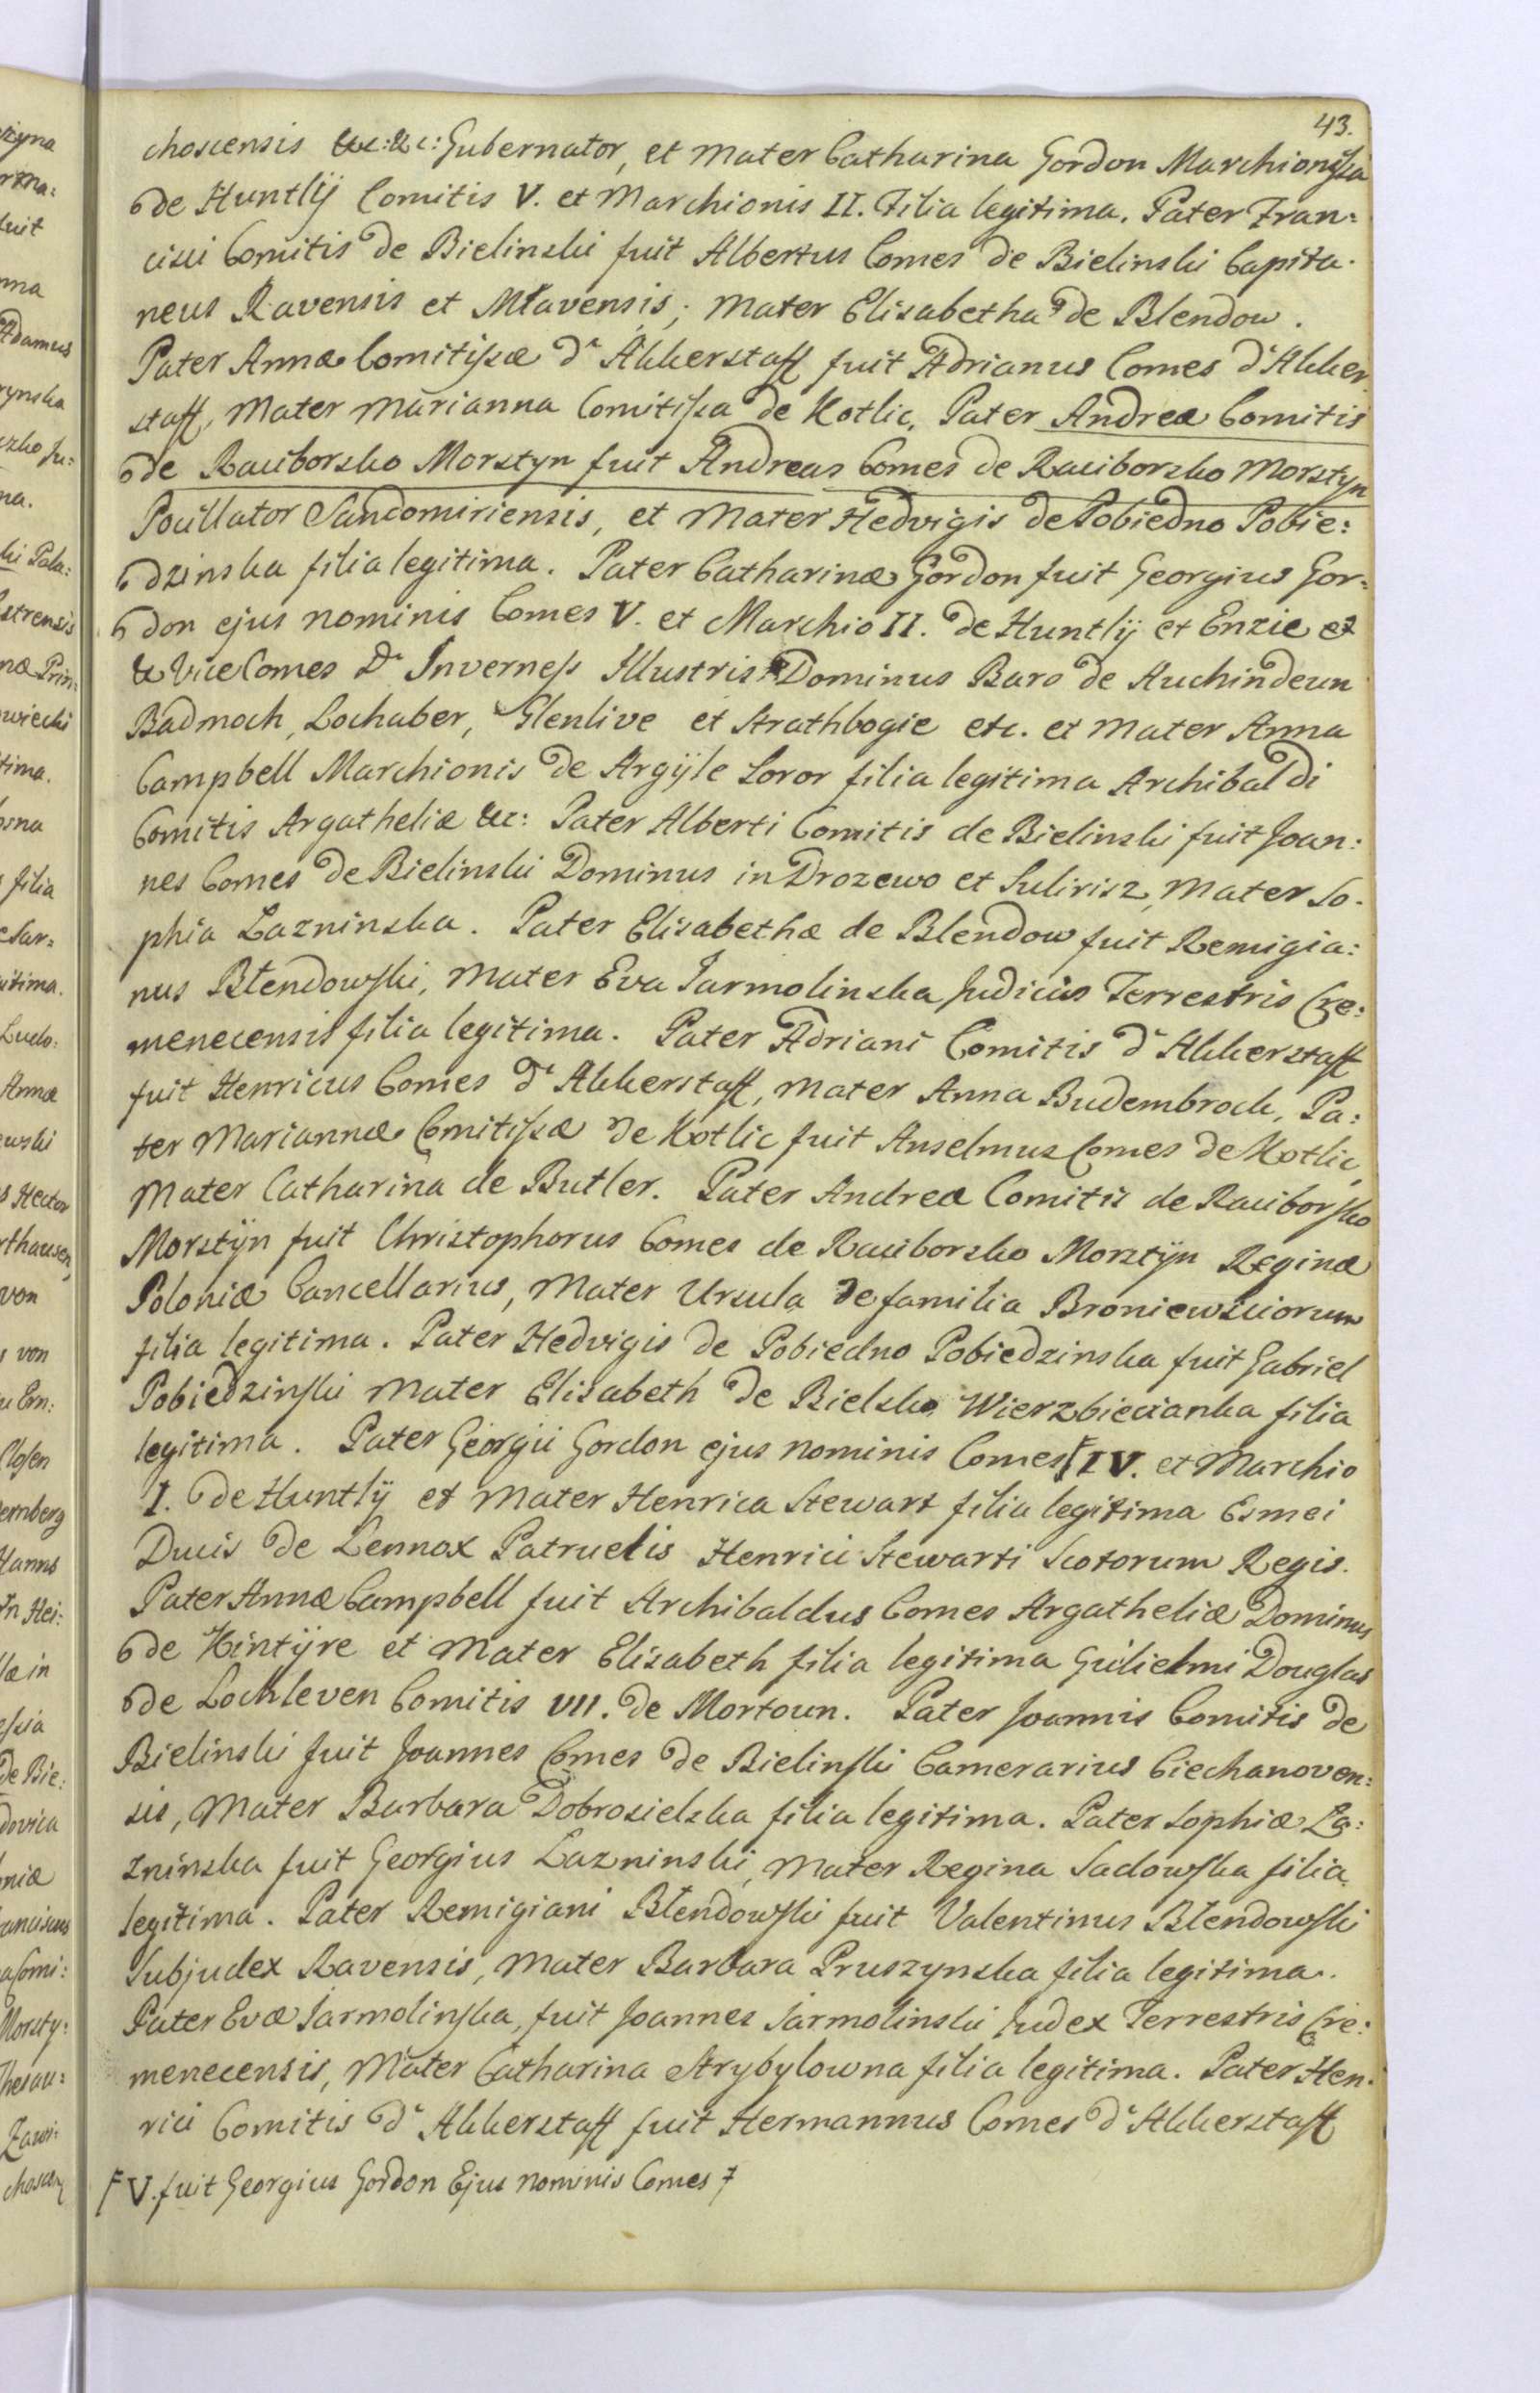 43.
choscensis &c: &c: Gubernator, et Mater Catharina Gordon Marchionissa
de Huntlÿ Comitis V. et Marchionis II. Filia legitima. Pater Fran:
cisci Comitis de Bielinski fuit Albertus Comes de Bielinski Capita-
neus Ravensis et Mławensis; Mater Elisabetha de Blendow.
Pater Annæ Comitissæ d'Akkerstaff fuit Adrianus Comes d'Akker
staff, Mater Marianna Comitissa de Kotlic, Pater Andreæ Comitis
de Raciborsko Morstyn fuit Andreas Comes de Raciborsko Morstyn
Pocillator Sandomiriensis, et Mater Hedvigis de Pobiedno Pobie:
dzinska filia legitima. Pater Catharinæ Gordon fuit Georgius Gor-
don ejus nominis Comes V. et Marchio II. de Huntlÿ et Enzie et
& ViceComes D' Inverness Illustris Dominus Baro de Auchindeun
Badmoch, Lochaber, Glenlive et Strathbogie etc. et Mater Anna
Campbell Marchionis de Argÿle Soror filia legitima Archibaldi
Comitis Argatheliæ &c: Pater Alberti Comitis de Bielinski fuit Joan:
nes Comes de Bielinski Dominus in Drozewo et Sulirisz, Mater So-
phia Lazninska. Pater Elisabethæ de Blendow fuit Remigia:
nus Błendowski, Mater Eva Jarmolinska Judicis Terrestris Cre:
menecensis filia legitima. Pater Adriani Comitis d'Akkerstaff
fuit Henricus Comes d'Akkerstaff, Mater Anna Budembrock, Pa:
ter Mariannæ Comitissæ de Kotlic fuit Anselmus Comes de Kotlic,
Mater Catharina de Butler. Pater Andreæ Comitis de Raciborsko
Morstÿn fuit Christophorus Comes de Raciborsko Morstÿn Reginæ
Poloniæ Cancellarius, Mater Ursula de familia Broniewsciorum
filia legitima. Pater Hedvigis de Pobiedno Pobiedzinska fuit Gabriel
Pobiedzinski Mater Elisabeth de Bielsko Wierzbiecianka filia
legitima. Pater Georgii Gordon ejus nominis Comes IV. et Marchio
I. de Huntlÿ et Mater Henrica Stewart filia legitima Esmei
Ducis de Lennox Patruelis Henrici Stewarti Scotorum Regis.
Pater Annæ Campbell fuit Archibaldus Comes Argatheliæ Dominus
de Kintÿre et Mater Elisabeth filia legitima Gulielmi Douglas
de Lochleven Comitis VII. de Mortoun. Pater Joannis Comitis de
Bielinski fuit Joannes Comes de Bielinski Camerarius Ciechanoven:
sis, Mater Barbara Dobrosielska filia legitima. Pater Sophiæ La:
zninska fuit Georgius Lazninski, Mater Regina Sadowska filia
legitima. Pater Remigiani Błendowski fuit Valentinus Błendowski
Subjudex Ravensis, Mater Barbara Pruszynska filia legitima.
Pater Evæ Jarmolinska, fuit Joannes Jarmolinski Judex Terrestris Cre:
menecensis, Mater Catharina Strybylowna filia legitima. Pater Hen-
rici Comitis d'Akkerstaff fuit Hermannus Comes d'Akkerstaff
V. fuit Georgius Gordon Ejus nominis Comes